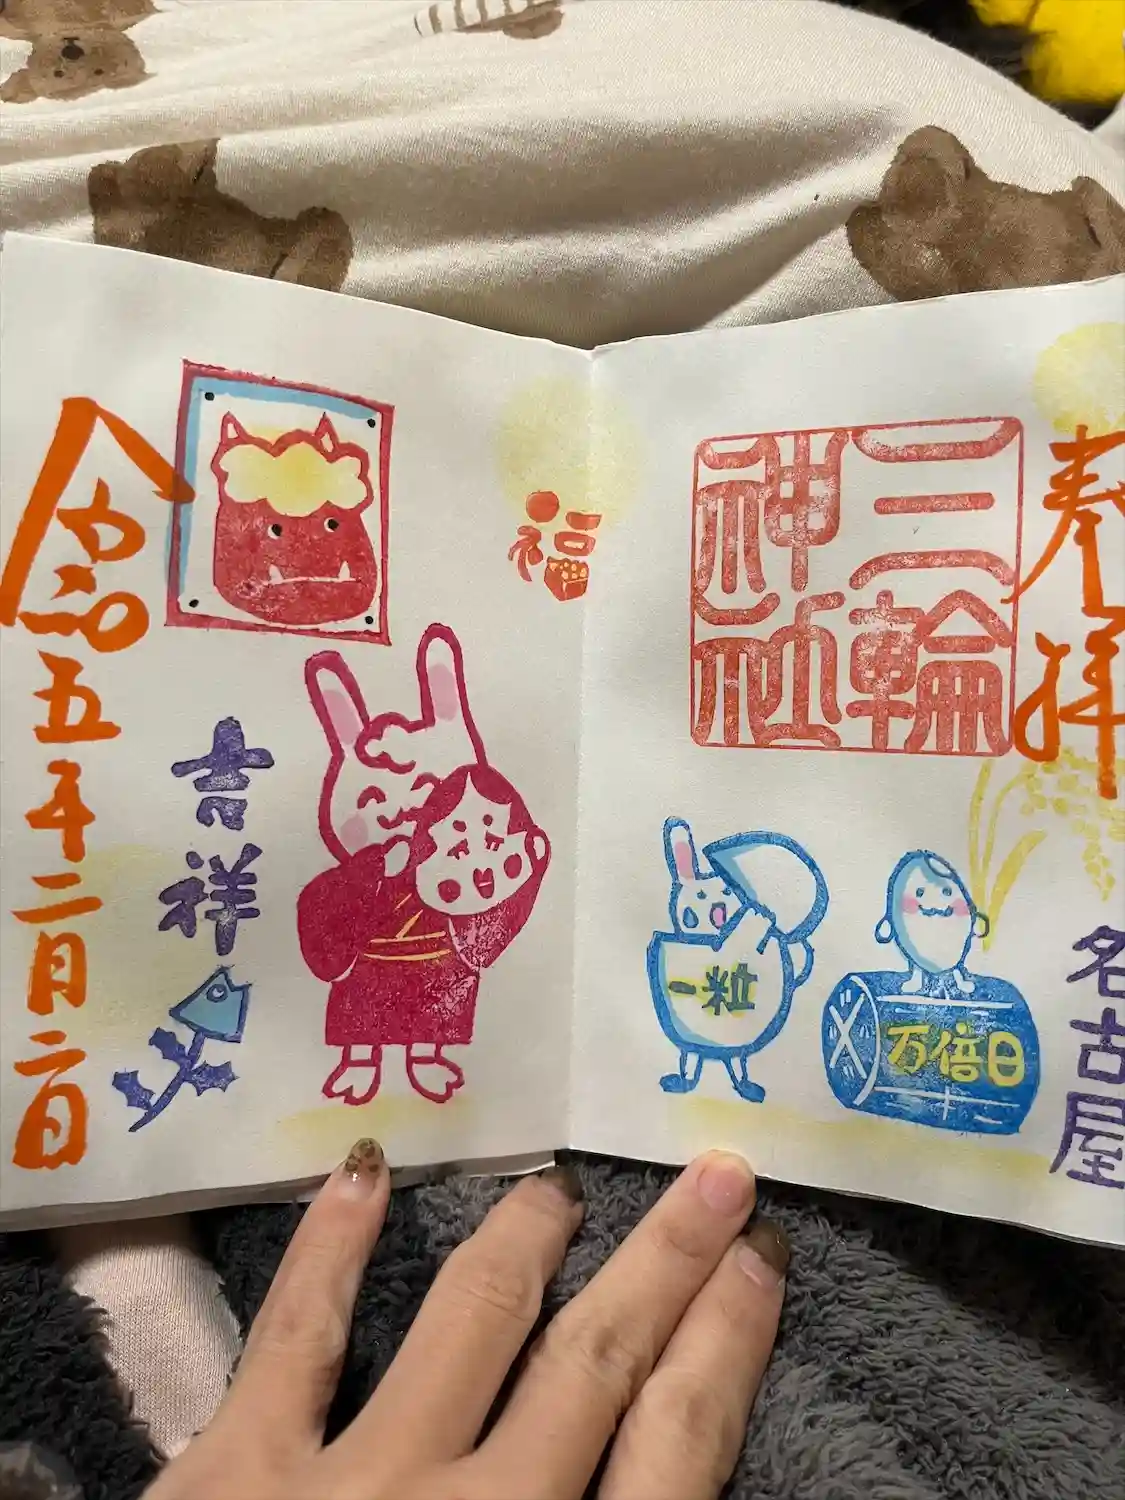 奉拝
名古屋
三輪
神社
一粒
万倍日
福
吉祥
令和五年二月二日